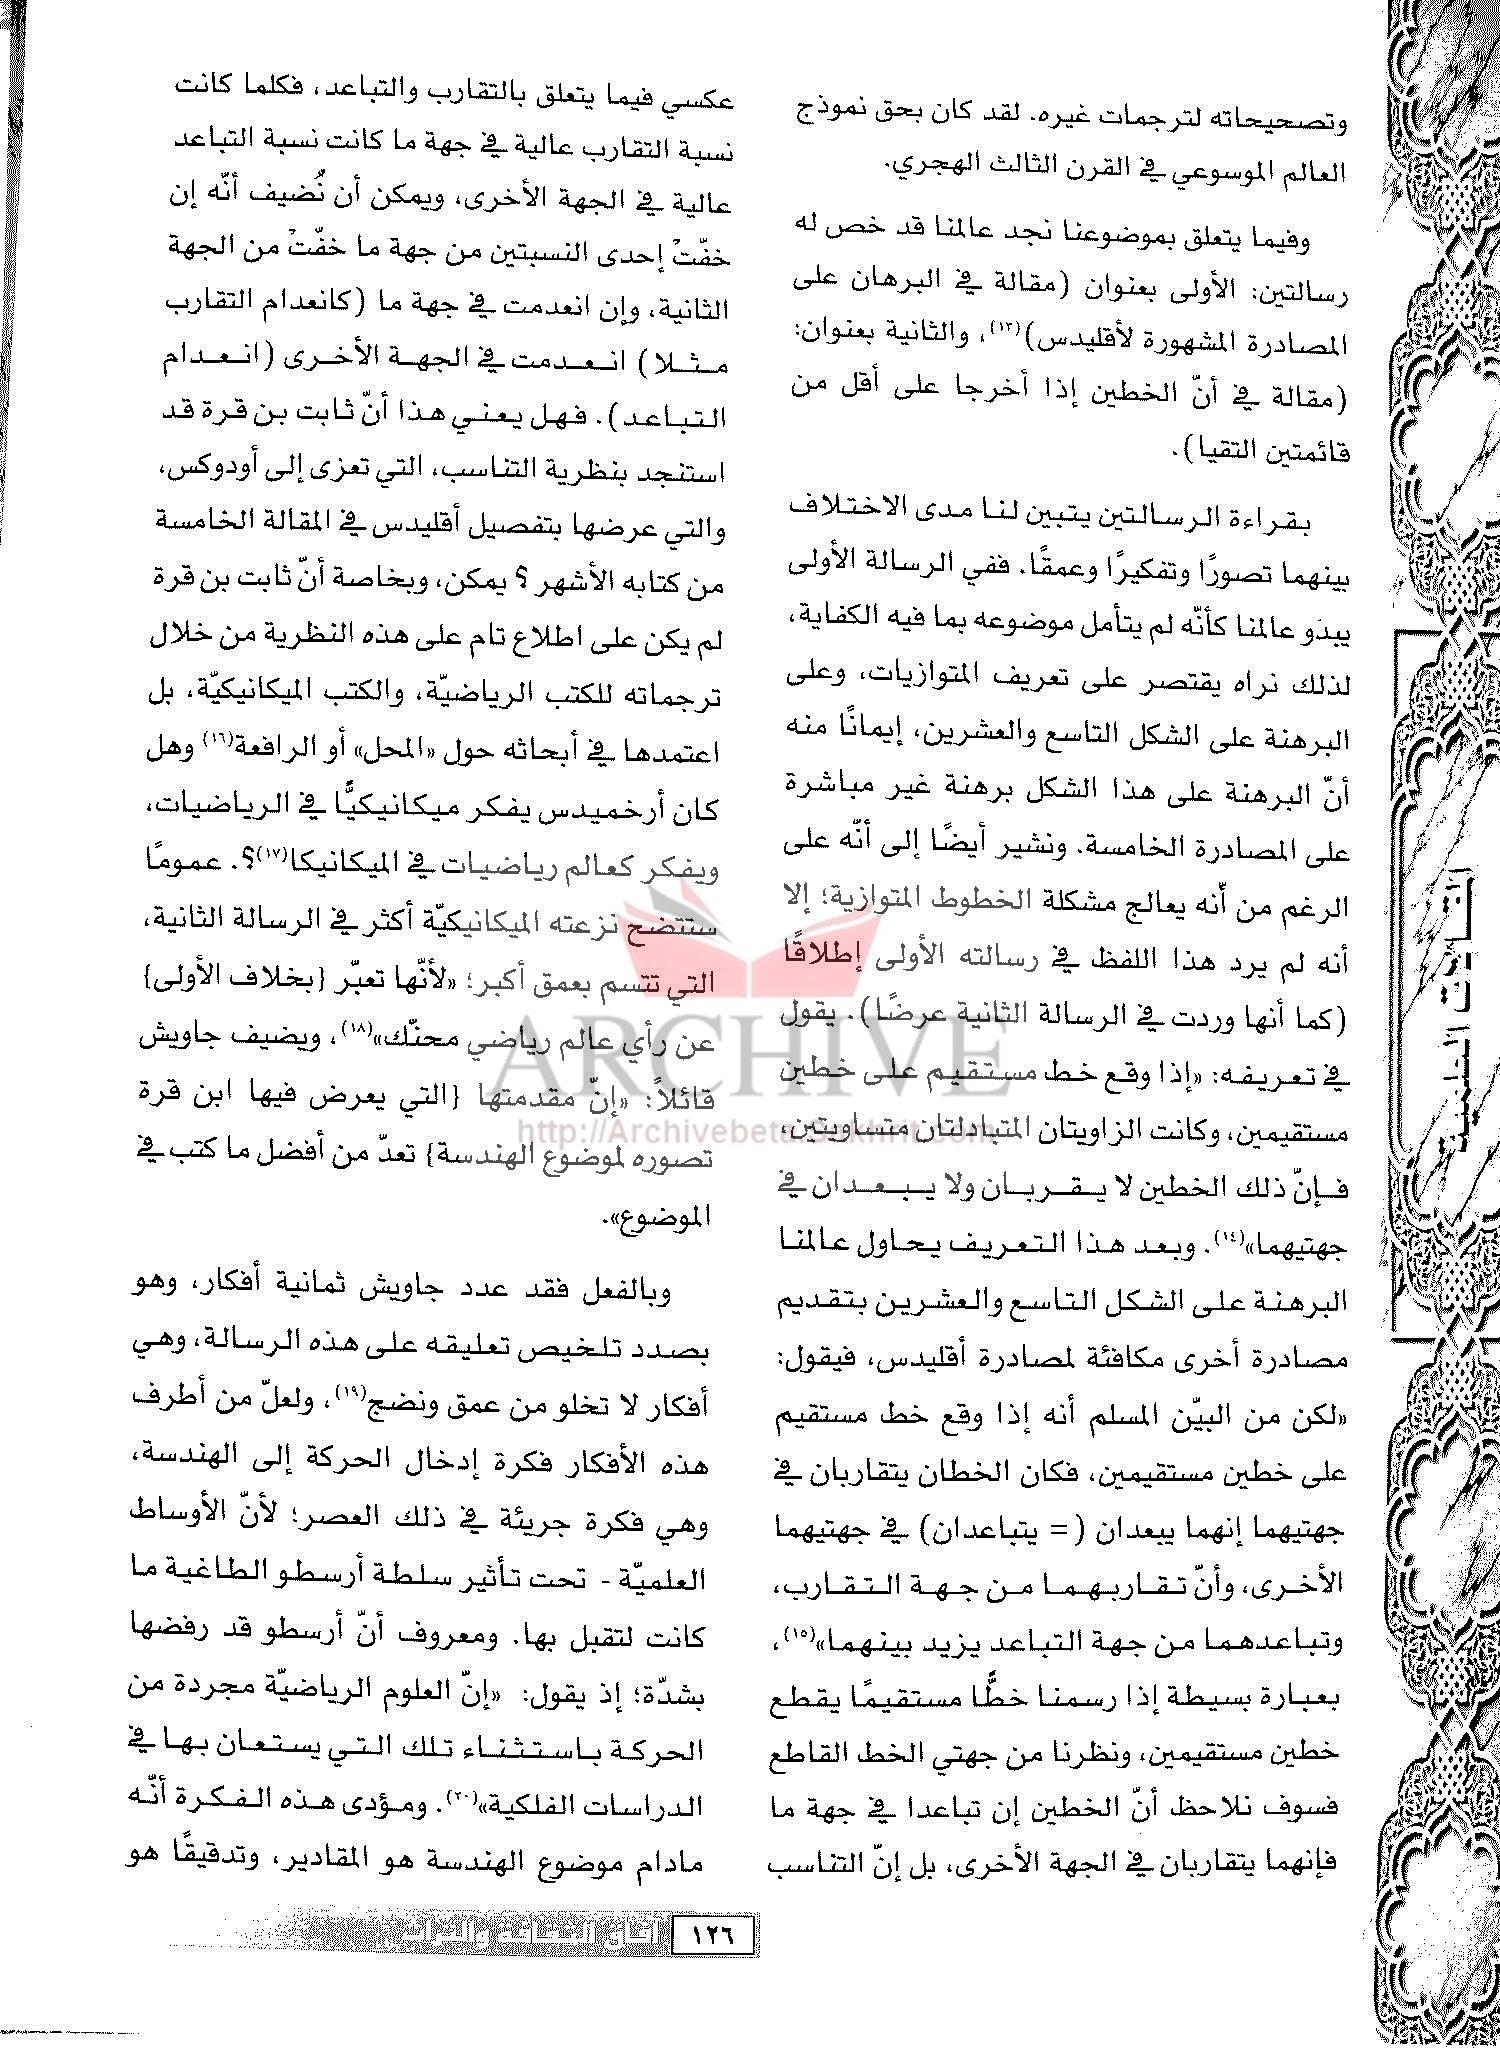 وتصحيحاته لترجمات غيره. لقد كان بحق نموذج
العالم الموسوعي في القرن الثالث الهجري.
وفيما يتعلق بموضوعنا نجد عالمنا قد خص له
رسالتين: الأولى بعنوان (مقالة في البرهان على
المصادرة المشهورة لأقليدس)(١٣)، والثانية بعنوان:
(مقالة في أنّ الخطين إذا أخرجا على أقل من
قائمتين التقيا).
بقراءة الرسالتين يتبين لنا مدى الاختلاف
بينهما تصورًا وتفكيرًا وعمقًا. ففي الرسالة الأولى
يبدو عالمنا كأنّه لم يتأمل موضوعه بما فيه الكفاية،
لذلك نراه يقتصر على تعريف المتوازيات، وعلى
البرهنة على الشكل التاسع والعشرين، إيمانًا منه
أنّ البرهنة على هذا الشكل برهنة غير مباشرة
على المصادرة الخامسة. ونشير أيضًا إلى أنّه على
الرغم من أنه يعالج مشكلة الخطوط المتوازية؛ إلا
أنه لم يرد هذا اللفظ في رسالته الأولى إطلاقًا
(كما أنها وردت في الرسالة الثانية عرضًا). يقول
في تعريفه: «إذا وقع خط مستقيم على خطين
مستقيمين، وكانت الزاويتان المتبادلتان متساويتين،
فإنّ ذلك الخطين لا يقربان ولا يبعدان في
جهتيهما»(١٤). وبعد هذا التعريف يحاول عالمنا
البرهنة على الشكل التاسع والعشرين بتقديم
مصادرة أخرى مكافئة لمصادرة أقليدس، فيقول:
«لكن من البيّن المسلم أنه إذا وقع خط مستقيم
على خطين مستقيمين، فكان الخطان يتقاربان في
جهتيهما إنهما يبعدان (= يتباعدان) في جهتيهما
الأخرى، وأنّ تقاربهما من جهة التقارب،
وتباعدهما من جهة التباعد يزيد بينهما»(١٥)،
بعبارة بسيطة إذا رسمنا خطًّا مستقيمًا يقطع
خطين مستقيمين، ونظرنا من جهتي الخط القاطع
فسوف نلاحظ أنّ الخطين إن تباعدا في جهة ما
فإنهما يتقاربان في الجهة الأخرى، بل إنّ التناسب
عكسي فيما يتعلق بالتقارب والتباعد، فكلما كانت
نسبة التقارب عالية في جهة ما كانت نسبة التباعد
عالية في الجهة الأخرى، ويمكن أن نُضيف أنّه إن
خفّتْ إحدى النسبتين من جهة ما خفّتْ من الجهة
الثانية، وإن انعدمت في جهة ما (كانعدام التقارب
مثلا) انعدمت في الجهة الأخرى (انعدام
التباعد). فهل يعني هذا أنّ ثابت بن قرة قد
استنجد بنظرية التناسب، التي تعزى إلى أودوكس،
والتي عرضها بتفصيل أقليدس في المقالة الخامسة
من كتابه الأشهر ؟ يمكن، وبخاصة أنّ ثابت بن قرة
لم يكن على اطلاع تام على هذه النظرية من خلال
ترجماته للكتب الرياضيّة، والكتب الميكانيكيّة، بل
اعتمدها في أبحاثه حول «المحل» أو الرافعة(١٦) وهل
كان أرخميدس يفكر ميكانيكيًّا في الرياضيات،
ويفكر كعالم رياضيات في الميكانيكا(١٧)؟. عمومًا
ستتضح نزعته الميكانيكيّة أكثر في الرسالة الثانية،
التي تتسم بعمق أكبر؛ «لأنّها تعبّر {بخلاف الأولى}
عن رأي عالم رياضي محنّك»(١٨)، ويضيف جاويش
قائلاً: «إنّ مقدمتها {التي يعرض فيها ابن قرة
تصوره لموضوع الهندسة} تعدّ من أفضل ما كتب في
الموضوع».
وبالفعل فقد عدد جاويش ثمانية أفكار، وهو
بصدد تلخيص تعليقه على هذه الرسالة، وهي
أفكار لا تخلو من عمق ونضج(١٩)، ولعلّ من أطرف
هذه الأفكار فكرة إدخال الحركة إلى الهندسة،
وهي فكرة جريئة في ذلك العصر؛ لأنّ الأوساط
العلميّة - تحت تأثير سلطة أرسطو الطاغية ما
كانت لتقبل بها. ومعروف أنّ أرسطو قد رفضها
بشدّة؛ إذ يقول: «إنّ العلوم الرياضيّة مجردة من
الحركة باستثناء تلك التي يستعان بها في
الدراسات الفلكية»(٢٠). ومؤدى هذه الفكرة أنّه
مادام موضوع الهندسة هو المقادير، وتدقيقًا هو
ARCHIVE
١٢٦ آفاق الثقافة والتراث